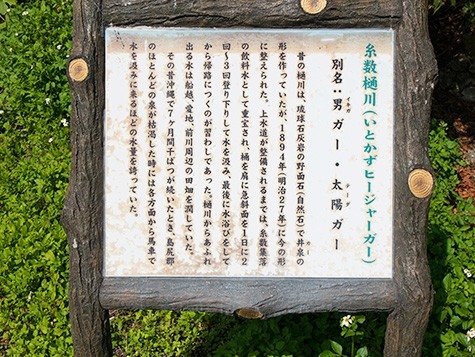 糸数樋川(いとかずヒージャーガー)
別名:男ガー・太陽ガー
イキガ
テーダ
昔の樋川は、琉球石灰岩の野面石(自然石)で井泉の
カー
形を作っていたが、1894年(明治27年)に今の形
に整えられた。上水道が整備されるまでは、糸数集落
の飲料水として重宝され、桶を肩に急斜面を1日に2
回〜3回登り下りして水を汲み、最後に水浴びをして
から帰路につくのが習わしであった。樋川からあふれ
出る水は船越、愛地、前川周辺の田畑を潤していた。
その昔沖縄で7ヶ月間干ばつが続いたとき、島尻郡
のほとんどの泉が枯渇した時には各方面から馬車で
水を汲みに来るほどの水量を誇っていた。